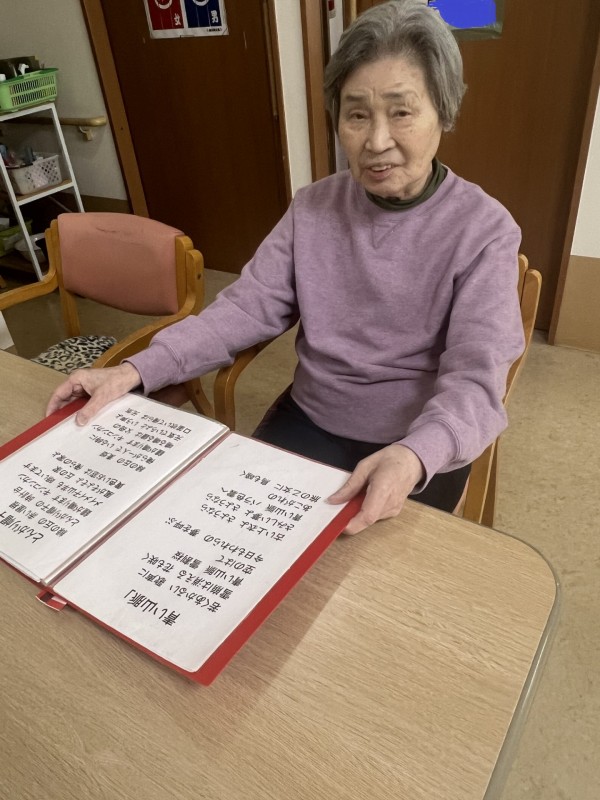 「青い山脈」
若くあかるい 歌声に
雪崩は消える 花も咲く
青い山脈 雪割桜
空のはて
今日もわれらの 夢を呼ぶ
古い上衣よ さようなら
さみしい夢よ さようなら
青い山脈 バラ色雲へ
あこがれの
旅の乙女に 鳥も啼く
とんがり帽子
緑の丘の 赤い屋根
とんがり帽子の 時計台
鐘が鳴ります キンコンカン
メイメイ小山羊も 啼いてます
風がそよそよ 丘の家
黄色いお窓は 俺らの家よ
緑の丘の 麦畑
俺らが一人で いる時に
鐘が鳴ります キンコンカン
鳴る鳴る鐘は 父母の
元気でいろよと いう声よ
口笛吹いて 俺らは元気
女 男